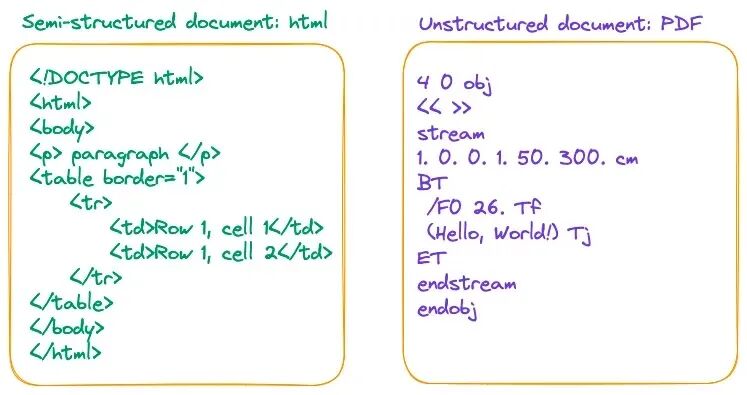 Semi-structured document: html
<!DOCTYPE html>
<html>
<body>
<p> paragraph </p>
<table border="1">
<tr>
<td>Row 1, cell 1</td>
<td>Row 1, cell 2</td>
</tr>
</table>
</body>
</html>
Unstructured document: PDF
4 0 obj
<< >>
stream
1. 0. 0. 1. 50. 300. cm
BT
/F0 26. Tf
(Hello, World!) Tj
ET
endstream
endobj